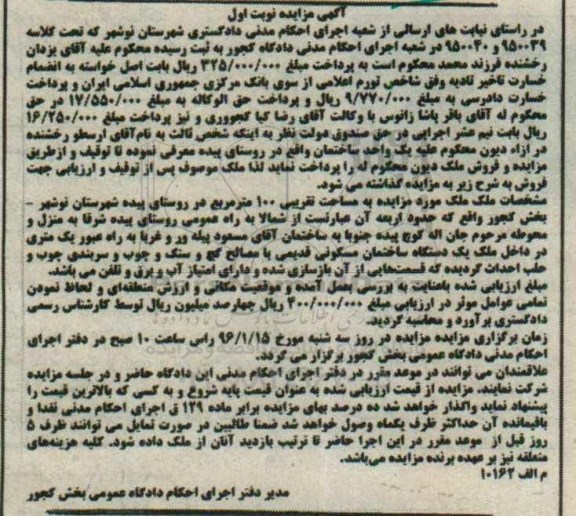 آگهی مزایده نوبت اول
در راستای نیابت های ارسالی از شعبه اجرای احکام مدنی دادگستری شهرستان نوشهر که تحت کلاسه
۹۵۰۰۳۹ و ۹۵۰۰۴۰ در شعبه اجرای احکام مدنی دادگاه کجور به ثبت رسیده محکوم علیه آقای یزدان
رخشنده فرزند محمد محکوم است به پرداخت مبلغ ۳۲۵/۰۰۰/۰۰۰ ریال بابت اصل خواسته به انضمام
خسارت تاخیر تادیه وفق شاخص تورم اعلامی از سوی بانک مرکزی جمهوری اسلامی ایران و پرداخت
خسارت دادرسی به مبلغ ۹/۷۷۰/۰۰۰ ریال و پرداخت حق الوکاله به مبلغ ۱۷/۵۵۰/۰۰۰ در حق
محکوم له آقای باقر پاشا زانوس با وکالت آقای رضا کیا کجووری و نیز پرداخت مبلغ ۱۶/۲۵۰/۰۰۰
ریال بابت نیم عشر اجرایی در حق صندوق دولت نظر به اینکه شخص ثالث به نام آقای ارسطو رخشنده
در ازاء دیون محکوم علیه یک واحد ساختمان واقع در روستای پیده معرفی نموده تا توقیف و ازطریق
مزایده و فروش ملک دیون محکوم له را پرداخت نماید لذا ملک موصوف پس از توقیف و ارزیابی جهت
فروش به شرح زیر به مزایده گذاشته می شود.
مشخصات ملک ملک مورد مزایده به مساحت تقریبی ۱۰۰ مترمربع در روستای پیده شهرستان نوشهر -
بخش کجور واقع که حدود اربعه آن عبارتست از شمالا به راه عمومی روستای پیده شرقا به منزل و
محوطه مرحوم جان اله کوچ پیده جنوبا به ساختمان آقای مسعود پیله ور و غربا به راه عبور یک متری
در داخل ملک یک دستگاه ساختمان مسکونی قدیمی با مصالح گچ و سنگ و چوب و سربندی چوب و
حلب احداث گردیده که قسمت‌هایی از آن بازسازی شده و دارای امتیاز آب و برق و تلفن می باشد.
مبلغ ارزیابی شده باعنایت به بررسی بعمل آمده و موقعیت مکانی و ارزش منطقه‌ای و لحاظ نمودن
تمامی عوامل موثر در ارزیابی مبلغ ۴۰۰/۰۰۰/۰۰۰ ریال چهارصد میلیون ریال توسط کارشناس رسمی
دادگستری برآورد و محاسبه گردید.
زمان برگزاری مزایده مزایده در روز سه شنبه مورخ ۹۶/۱/۱۵ راس ساعت ۱۰ صبح در دفتر اجرای
احکام مدنی دادگاه عمومی بخش کجور برگزار می گردد.
علاقمندان می توانند در موعد مقرر در دفتر اجرای احکام مدنی این دادگاه حاضر و در جلسه مزایده
شرکت نمایند. مزایده از قیمت ارزیابی شده به عنوان قیمت پایه شروع و به کسی که بالاترین قیمت را
پیشنهاد نماید واگذار خواهد شد ده درصد بهای مزایده برابر ماده ۱۲۹ ق اجرای احکام مدنی نقدا و
باقیمانده آن حداکثر ظرف یکماه وصول خواهد شد ضمنا طالبین در صورت تمایل می توانند ظرف ۵
روز قبل از موعد مقرر در این اجرا حاضر تا ترتیب بازدید آنان از ملک داده شود. کلیه هزینه‌های
متعلقه نیز بر عهده برنده مزایده می‌باشد.
م الف ۱۰۱۶۲
مدیر دفتر اجرای احکام دادگاه عمومی بخش کجور